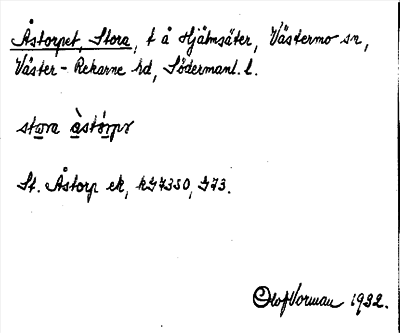 Åstorpet, Stora, t å Hjälmsäter, Västermo sn,
Väster-Rekarne hd, Södermanl. l.
stora àstórpr
St. Åstorp ek, hG7350, G73.
Olof Vorman 1932.